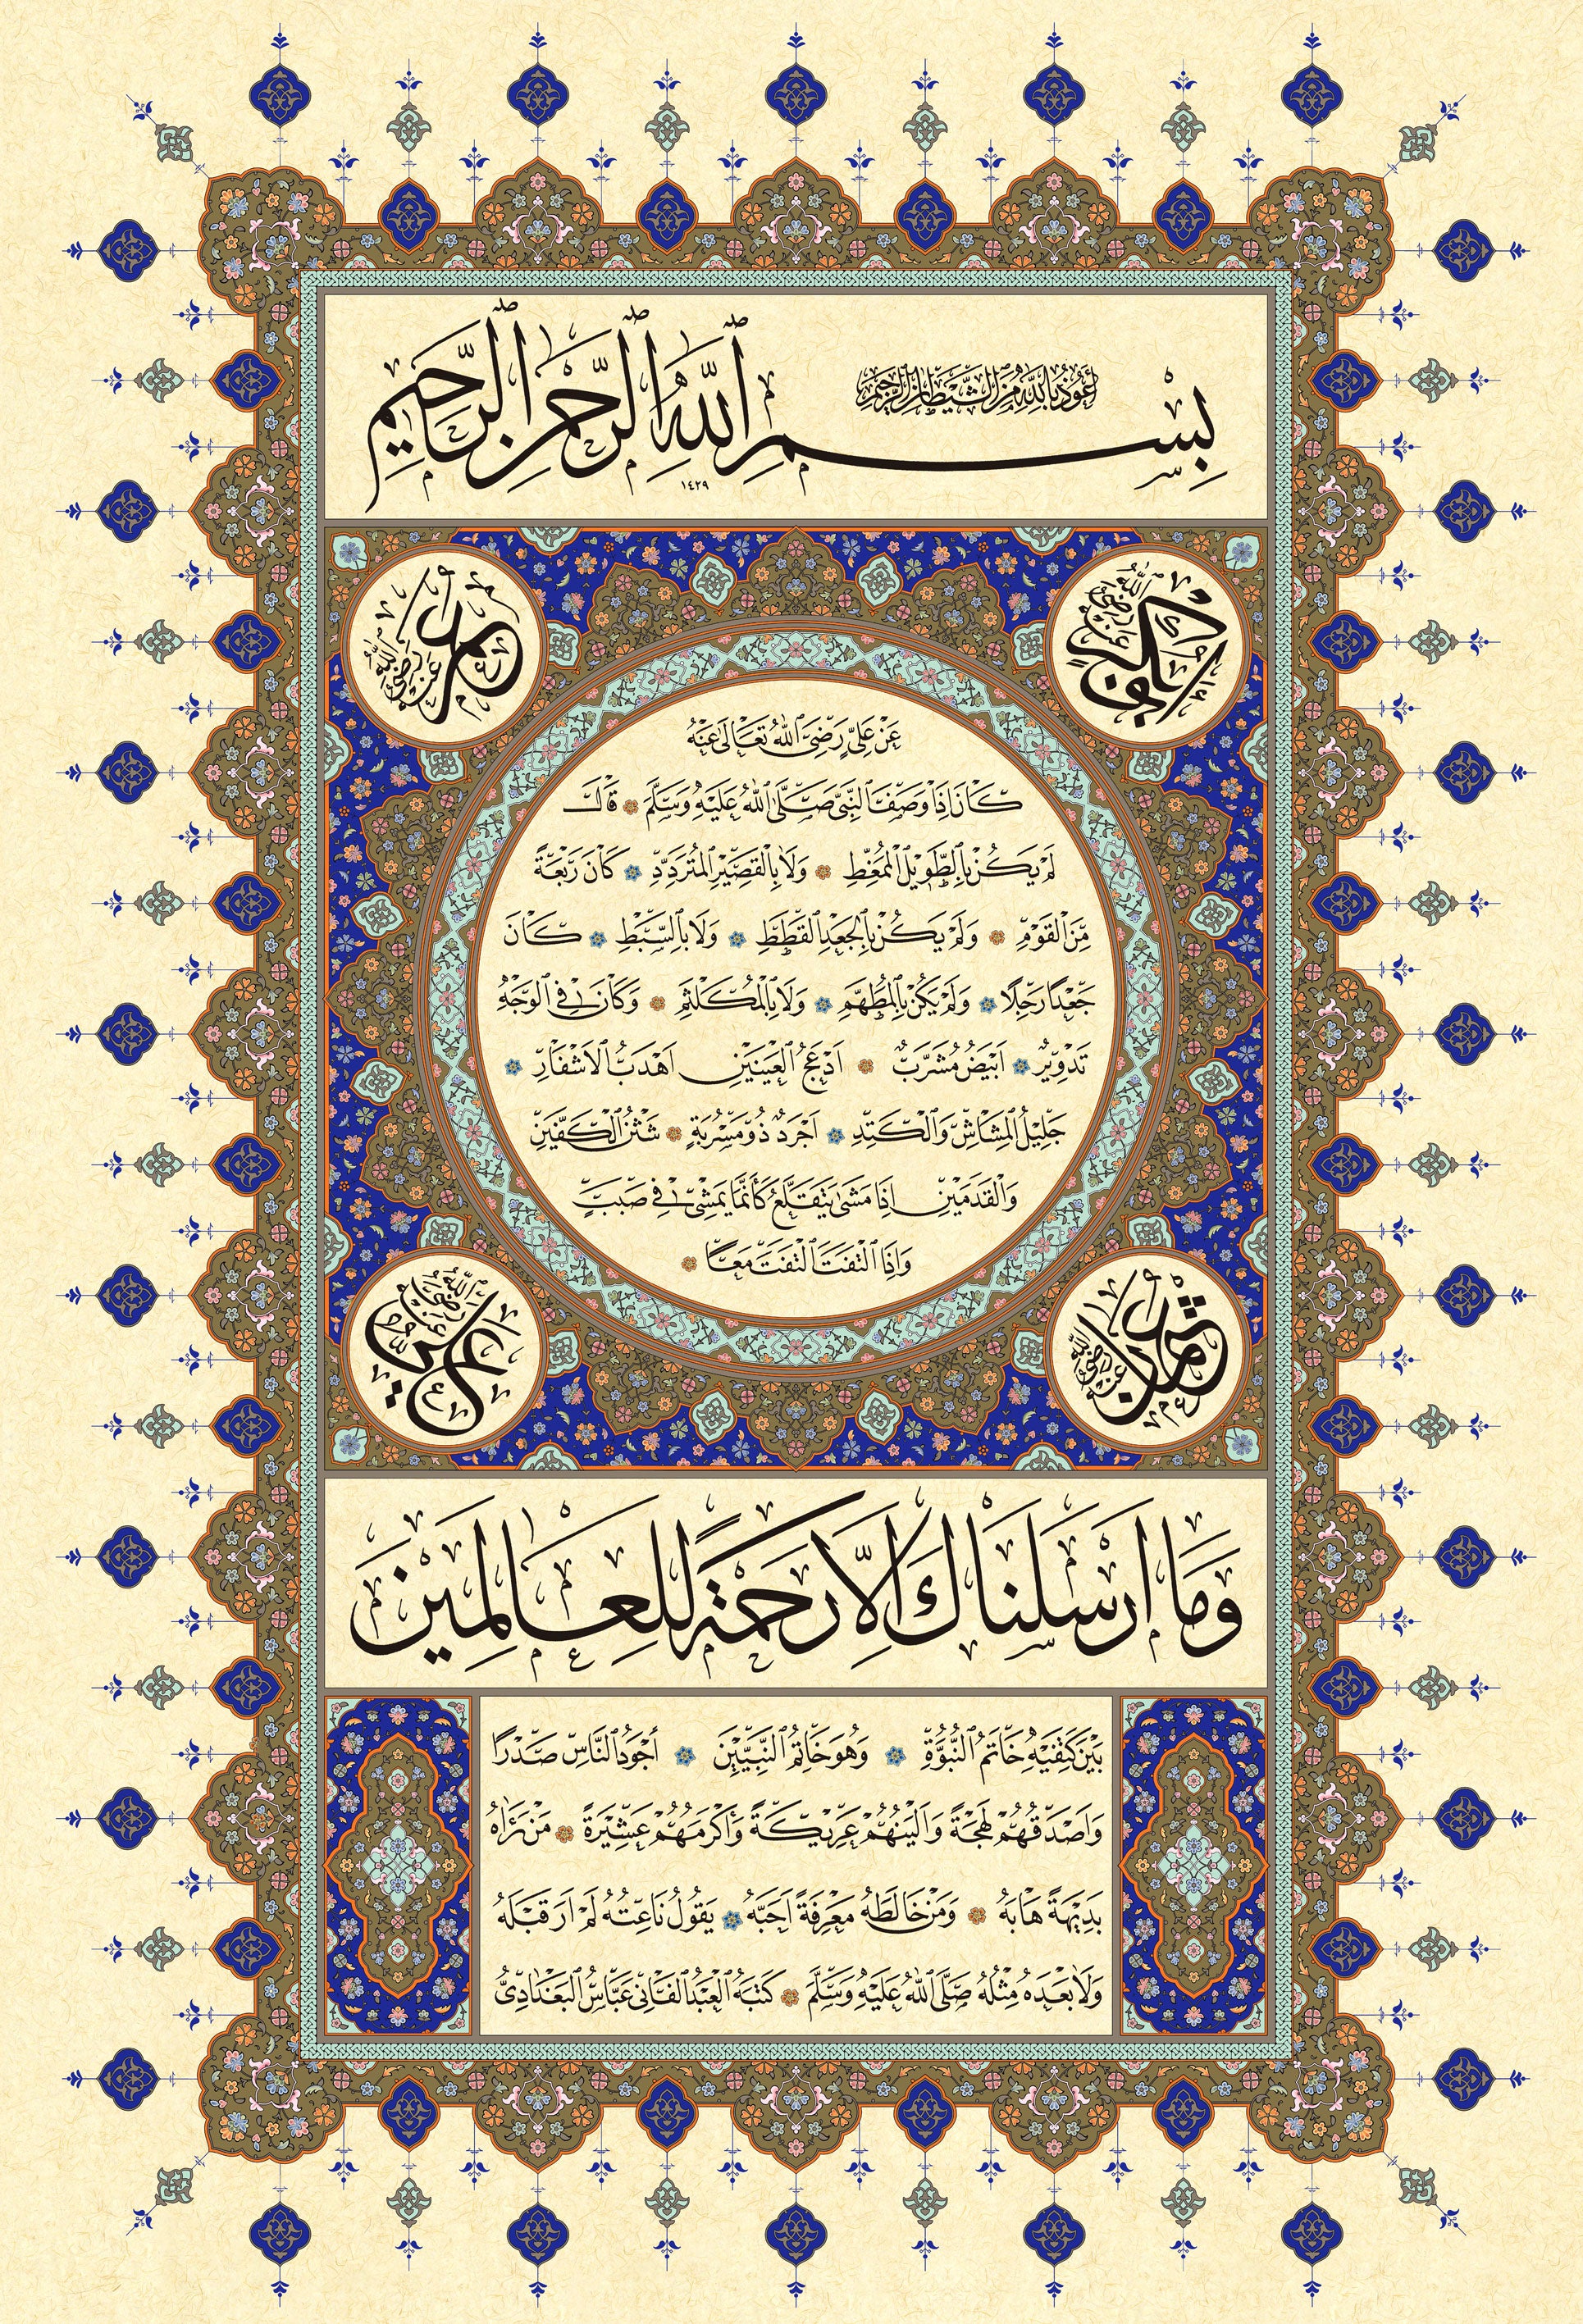 بِسْمِ ٱللَّهِ ٱلرَّحْمٰنِ ٱلرَّحِيمِ
أَعُوذُ بِاللَّهِ مِنَ الشَّيْطَانِ الرَّجِيمِ
١٤٢٩
أبو بكر رضي الله عنه
عمر رضي الله عنه
عَنْ عَلِيٍّ رَضِيَ اللهُ تَعَالَى عَنْهُ
كَانَ إِذَا وَصَفَ النَّبِيَّ صَلَّى اللهُ عَلَيْهِ وَسَلَّمَ قَالَ
لَمْ يَكُنْ بِالطَّوِيلِ الْمُمَّغِطِ وَلَا بِالْقَصِيرِ الْمُتَرَدِّدِ كَانَ رَبْعَةً
مِنَ الْقَوْمِ وَلَمْ يَكُنْ بِالْجَعْدِ الْقَطَطِ وَلَا بِالسَّبْطِ كَانَ
جَعْدًا رَجِلًا وَلَمْ يَكُنْ بِالْمُطَهَّمِ وَلَا بِالْمُكَلْثَمِ وَكَانَ فِي الْوَجْهِ
تَدْوِيرٌ اَبْيَضُ مُشَرَّبٌ اَدْعَجُ الْعَيْنَيْنِ اَهْدَبُ الْاَشْفَارِ
جَلِيلُ الْمُشَاشِ وَالْكَتِدِ اَجْرَدُ ذُو مَسْرُبَةٍ شَثْنُ الْكَفَّيْنِ
وَالْقَدَمَيْنِ اِذَا مَشَى يَتَقَلَّعُ كَأَنَّمَا يَمْشِي فِي صَبَبٍ
وَاِذَا الْتَفَتَ الْتَفَتَ مَعًا
عثمان رضي الله عنه
علي رضي الله عنه
وَمَا اَرْسَلْنَاكَ اِلَّا رَحْمَةً لِلْعَالَمِينَ
بَيْنَ كَتِفَيْهِ خَاتَمُ النُّبُوَّةِ وَهُوَ خَاتَمُ النَّبِيِّينَ أَجْوَدُ النَّاسِ صَدْرًا
وَاَصْدَقُهُمْ لَهْجَةً وَاَلْيَنُهُمْ عَرِيكَةً وَأَكْرَمُهُمْ عَشِيرَةً مَنْ رَاٰهُ
بَدِيهَةً هَابَهُ وَمَنْ خَالَطَهُ مَعْرِفَةً اَحَبَّهُ يَقُولُ نَاعِتُهُ لَمْ اَرَ قَبْلَهُ
وَلَا بَعْدَهُ مِثْلَهُ صَلَّى اللهُ عَلَيْهِ وَسَلَّمَ كَتَبَهُ الْعَبْدُ الْفَانِي عَبَّاسُ الْبَغْدَادِيُّ